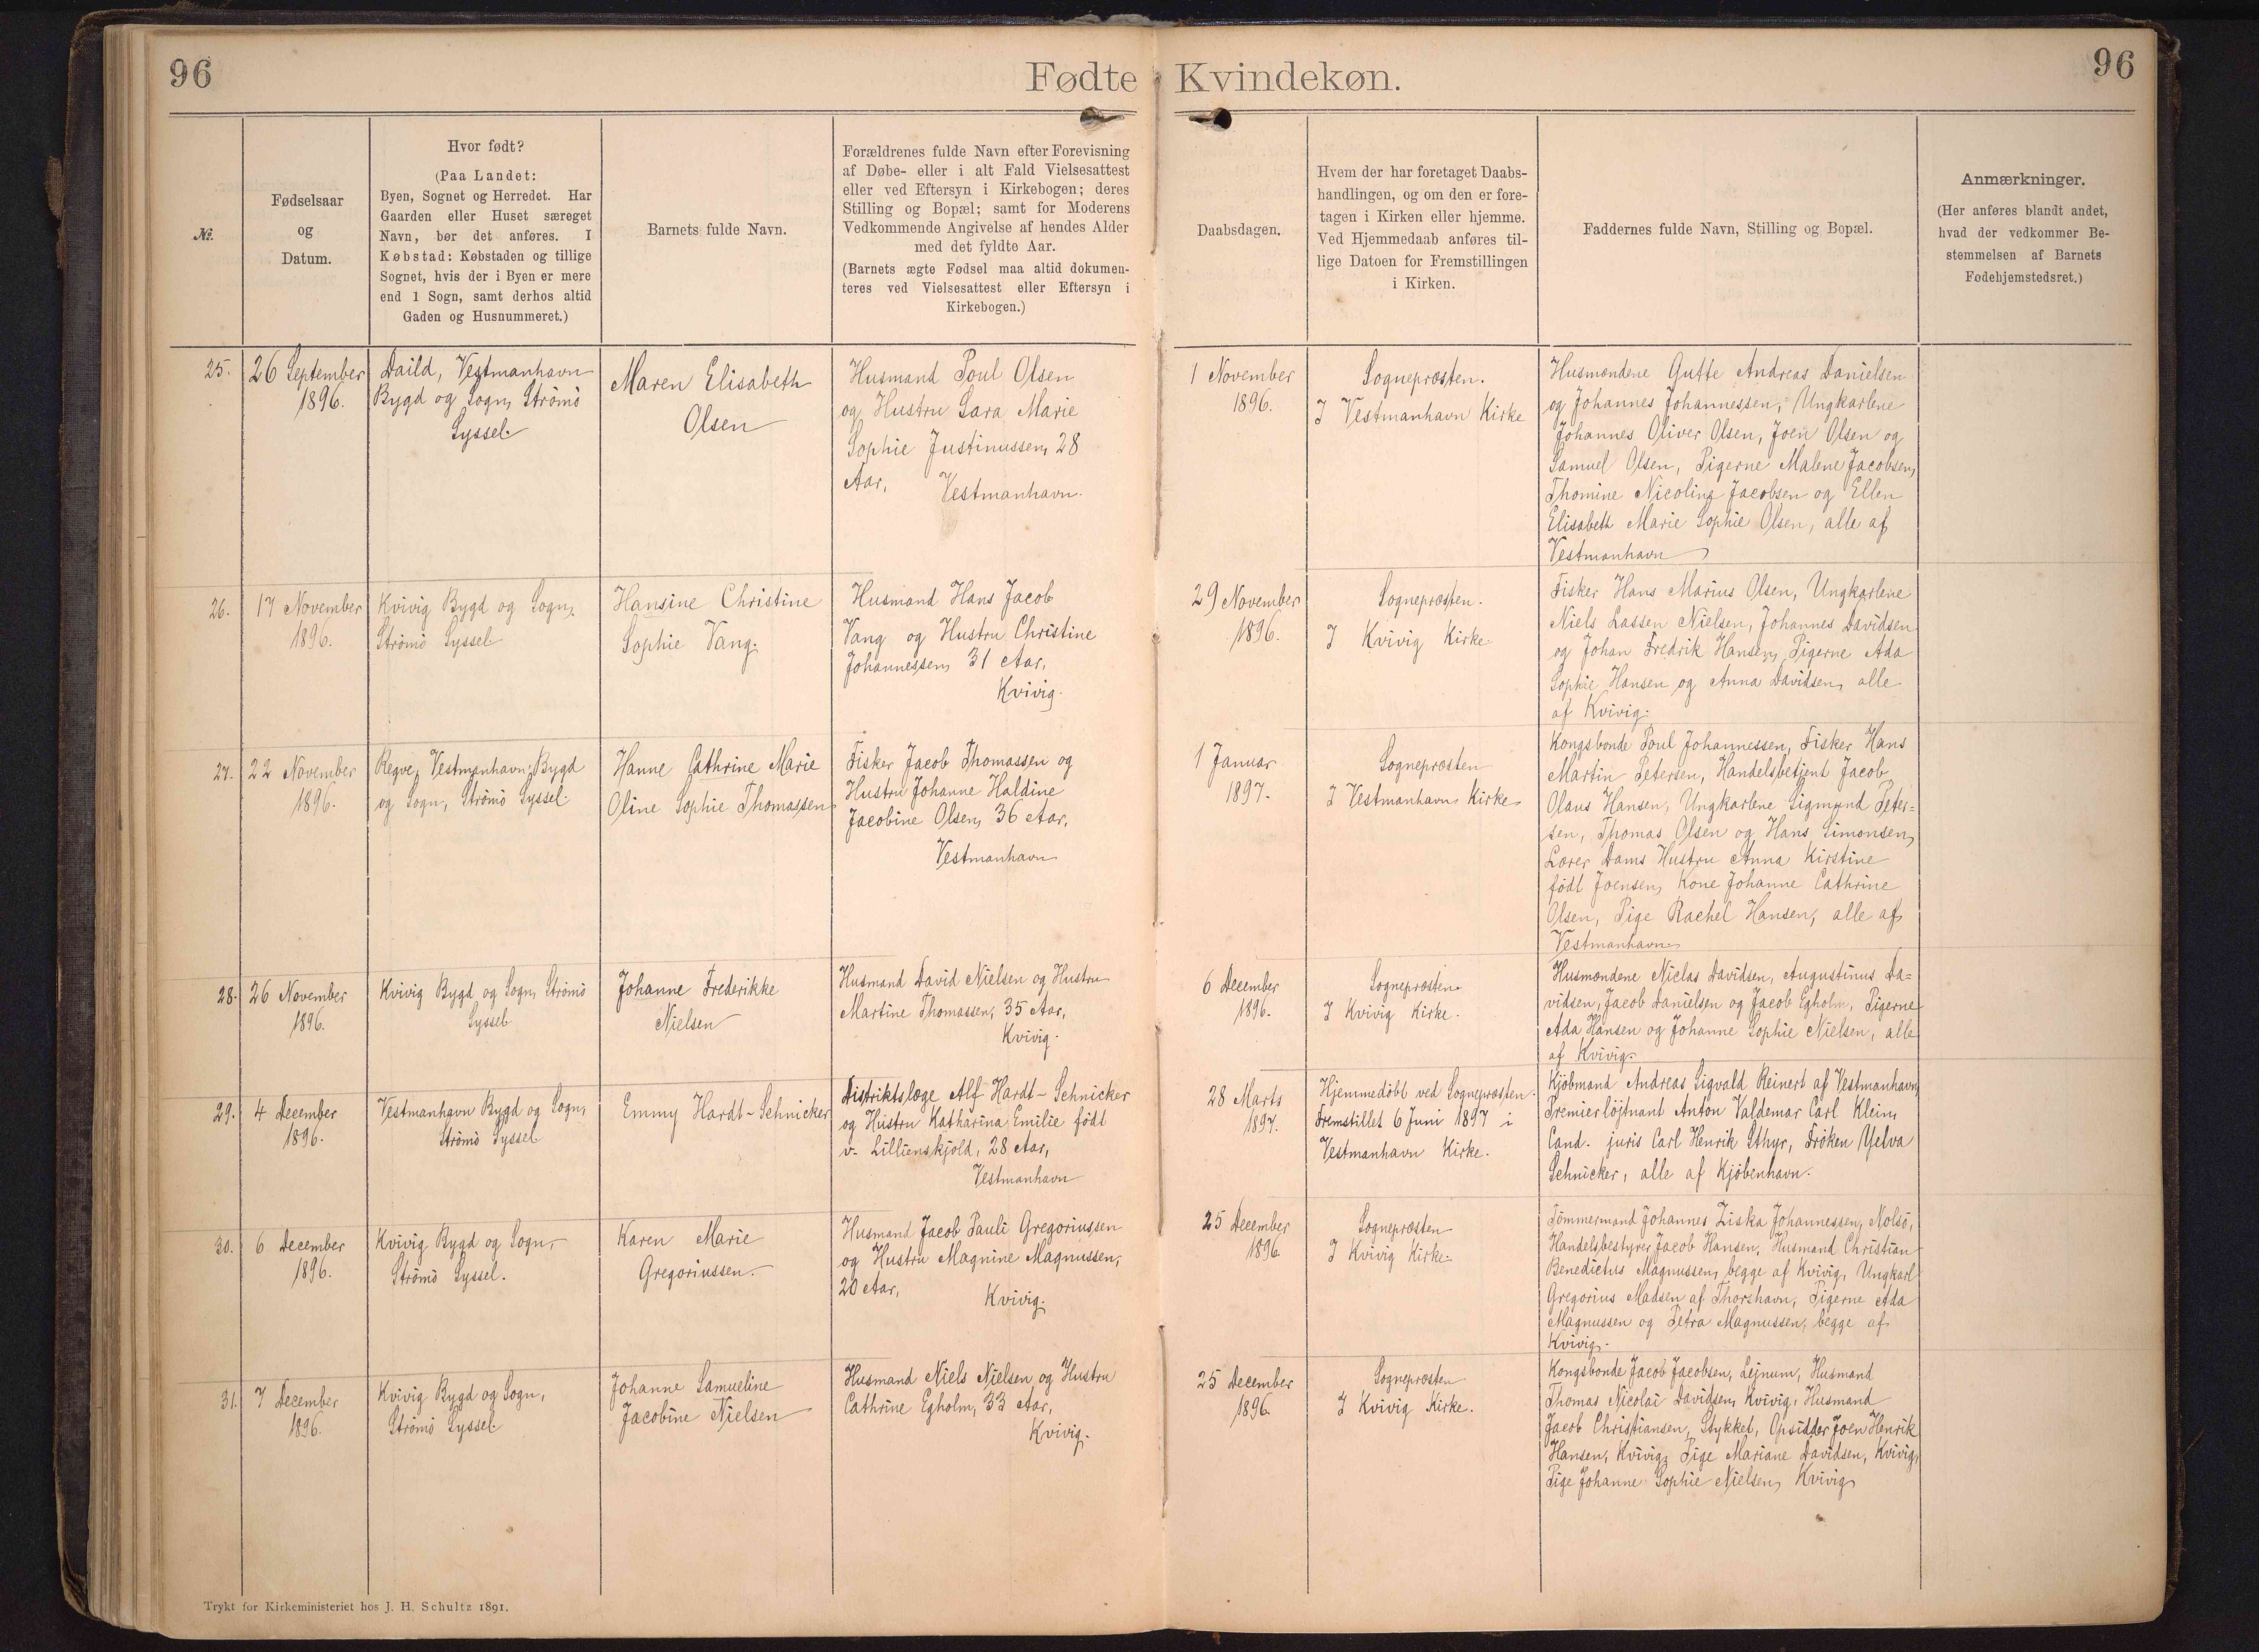 96
Fødte Kvindekøn.
96
№.
Fødselsaar
og
Datum.
Hvor født?
(Paa Landet:
Byen, Sognet og Herredet. Har
Gaarden eller Huset særeget
Navn, bør det anføres. I
Købstad: Købstaden og tillige
Sognet, hvis der i Byen er mere
end 1 Sogn, samt derhos altid
Gaden og Husnummeret.)
Barnets fulde Navn.
Forældrenes fulde Navn efter Forevisning
af Døbe- eller i alt Fald Vielsesattest
eller ved Eftersyn i Kirkebogen; deres
Stilling og Bopæl; samt for Moderens
Vedkommende Angivelse af hendes Alder
med det fyldte Aar.
(Barnets ægte Fødsel maa altid dokumen-
teres ved Vielsesattest eller Eftersyn i
Kirkebogen.)
Daabsdagen.
Hvem der har foretaget Daabs-
handlingen, og om den er fore-
tagen i Kirken eller hjemme.
Ved Hjemmedaab anføres til-
lige Datoen for Fremstillingen
i Kirken.
Faddernes fulde Navn, Stilling og Bopæl.
Anmærkninger.
(Her anføres blandt andet,
hvad der vedkommer Be-
stemmelsen af Barnets
Fødehjemstedsret.)
25.
26 September
1896.
Daild, Vestmanhavn
Bygd og Sogn, Strömö
Syssel.
Maren Elisabeth
Olsen
Husmand Poul Olsen
og Hustru Sara Marie
Sophie Justinussen, 28
Aar, Vestmanhavn.
1 November
1896.
Sognepræsten.
I Vestmanhavn Kirke
Husmændene Gutte Andreas Danielsen
og Johannes Johannessen, Ungkarlene
Johannes Oliver Olsen, Joen Olsen og
Samuel Olsen, Pigerne Malene Jacobsen,
Thomine Nicoline Jacobsen og Ellen
Elisabeth Marie Sophie Olsen, alle af
Vestmanhavn
26.
17 November
1896.
Kvivig Bygd og Sogn,
Strömö Syssel
Hansine Christine
Sophie Vang.
Husmand Hans Jacob
Vang og Hustru Christine
Johannessen, 31 Aar,
Kvivig.
29 November
1896.
Sognepræsten.
I Kvivig Kirke.
Fisker Hans Marius Olsen, Ungkarlene
Niels Lassen Nielsen, Johannes Davidsen
og Johan Fredrik Hansen, Pigerne Ada
Sophie Hansen og Anna Davidsen, alle
af Kvivig.
27.
22 November
1896.
Regve, Vestmanhavn Bygd
og Sogn, Strömö Syssel.
Hanne Cathrine Marie
Oline Sophie Thomassen
Fisker Jacob Thomassen og
Hustru Johanne Haldine
Jacobine Olsen, 36 Aar,
Vestmanhavn
1 Januar
1897.
Sognepræsten
I Vestmanhavn Kirke
Kongsbonde Poul Johannessen, Fisker Hans
Martin Petersen, Handelsbetjent Jacob
Olaus Hansen, Ungkarlene Sigmund Peter=
sen, Thomas Olsen og Hans Simonsen,
Lærer Dams Hustru Anna Kirstine
född Joensen, Kone Johanne Cathrine
Olsen, Pige Rachel Hansen, alle af
Vestmanhavn
28.
26 November
1896.
Kvivig Bygd og Sogn, Strömö
Syssel
Johanne Frederikke
Nielsen
Husmand David Nielsen og Hustru
Martine Thomassen, 35 Aar,
Kvivig.
6 December
1896.
Sognepræsten.
I Kvivig Kirke.
Husmændene Niclas Davidsen, Augustinus Da=
vidsen, Jacob Danielsen og Jacob Egholm, Pigerne
Ada Hansen og Johanne Sophie Nielsen, alle
af Kvivig.
29.
4 December
1896.
Vestmanhavn Bygd og Sogn,
Strömö Syssel
Emmy Hardt-Schnicker
Distriktslæge Alf Hardt-Schnicker
og Hustru Katharina Emilie född
v. Lillienskjold, 28 Aar,
Vestmanhavn
28 Marts
1897.
Hjemmedöbt ved Sognepræsten.
Fremstillet 6 Juni 1897 i
Vestmanhavn Kirke.
Kjöbmand Andreas Sigvald Reinert af Vestmanhavn,
Premierlöjtnant Anton Valdemar Carl Klein,
Cand. juris Carl Henrik Sthyr, Fröken Yelva
Schnicker, alle af Kjöbenhavn.
30.
6 December
1896.
Kvivig Bygd og Sogn,
Strömö Syssel.
Karen Marie
Gregoriussen.
Husmand Jacob Pauli Gregoriussen
og Hustru Magnine Magnussen,
20 Aar, Kvivig.
25 December
1896
Sognepræsten
I Kvivig Kirke.
Tömmermand Johannes Ziska Johannessen, Nolsö,
Handelsbestyrer Jacob Hansen, Husmand Christian
Benedictus Magnussen, begge af Kvivig, Ungkarl
Gregorius Madsen af Thorshavn, Pigerne Ada
Magnussen og Petra Magnussen, begge af
Kvivig.
31.
7 December
1896.
Kvivig Bygd og Sogn,
Strömö Syssel
Johanne Samueline
Jacobine Nielsen
Husmand Niels Nielsen og Hustru
Cathrine Egholm, 33 Aar,
Kvivig.
25 December
1896.
Sognepræsten
I Kvivig Kirke.
Kongsbonde Jacob Jacobsen, Lejnum, Husmand
Thomas Nicolai Davidsen, Kvivig, Husmand
Jacob Christiansen, Stykket, Opsidder Joen Henrik
Hansen, Kvivig, Pige Mariane Davidsen, Kvivig,
Pige Johanne Sophie Nielsen, Kvivig
Trykt for Kirkeministeriet hos J. H. Schultz 1891.